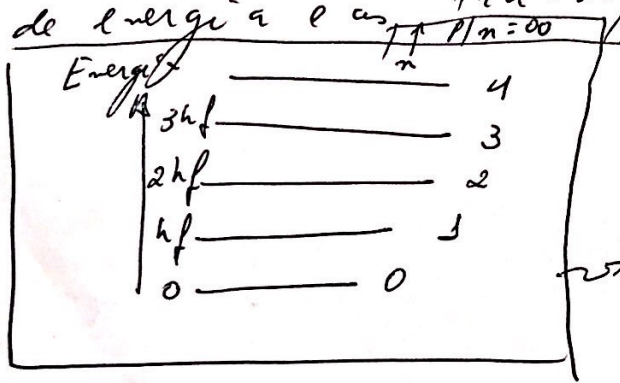 de energia e as
n P/n = ∞
Energia
4
3hf 3
2hf 2
hf 1
0 0